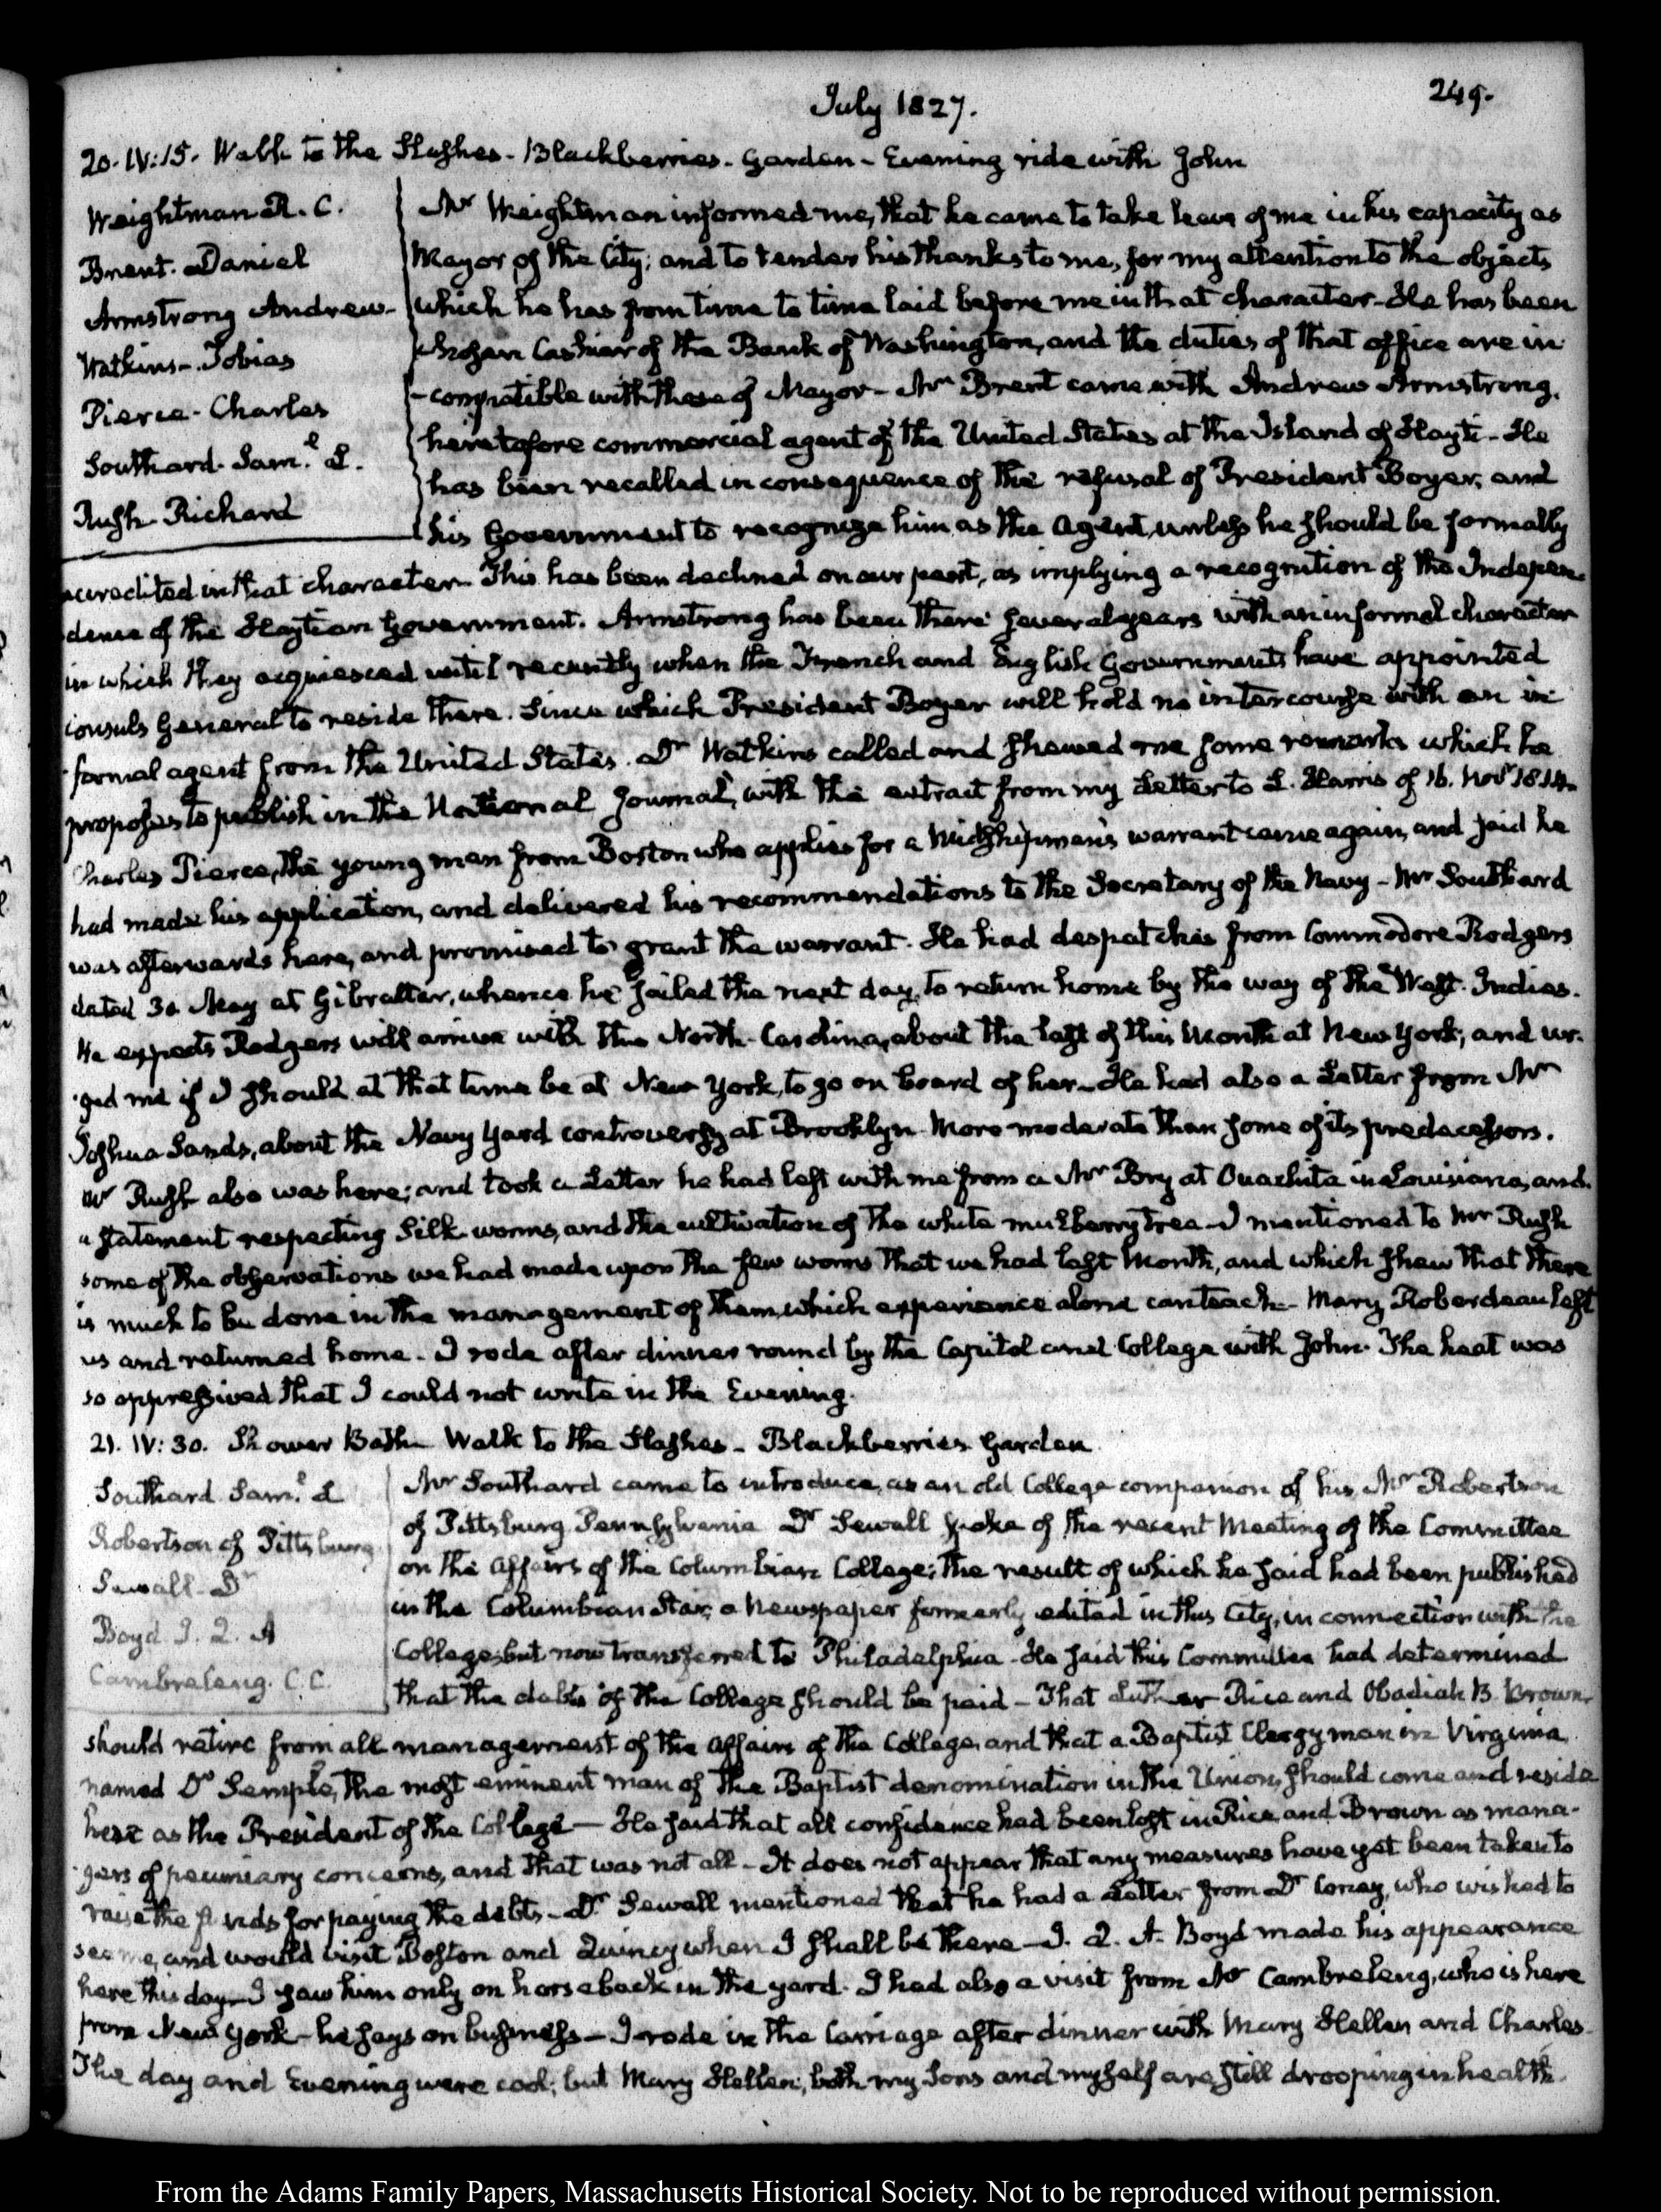 July 1827.
249.
20. IV:15. Walk to the Slashes - Blackberries - Garden - Evening ride with John
Weightman R. C.
Brent. Daniel
Armstrong Andrew -
Watkins - Tobias
Pierce - Charles
Southard. Sam.l L.
Rush - Richard
Mr Weightman informed me, that he came to take leave of me in his capacity as
Mayor of the City; and to tender his thanks to me, for my attention to the objects
which he has from time to time laid before me in that character - He has been
chosen Cashier of the Bank of Washington, and the duties of that office are in
-compatible with those of Mayor - Mr Brent came with Andrew Armstrong,
heretofore commercial agent of the United States at the Island of Hayti - He
has been recalled in consequence of the refusal of President Boyer, and
his Government to recognize him as the Agent, unless he should be formally
accredited in that character - This has been declined on our part, as implying a recognition of the Indepen-
dence of the Haytian Government. Armstrong has been there several years with an informal character
in which they acquiesced until recently when the French and English Governments have appointed
Consuls General to reside there. Since which President Boyer will hold no intercourse with an in
-formal agent from the United States. Dr Watkins called and shewed me some remarks which he
proposes to publish in the National Journal, with the extract from my Letter to L. Harris of 16. Novr 1814.
Charles Pierce, the young man from Boston who applies for a Midshipman's warrant came again, and said he
had made his application, and delivered his recommendations to the Secretary of the Navy - Mr Southard
was afterwards here, and promised to grant the warrant. He had despatches from Commodore Rodgers
dated 30 May at Gibraltar, whence he sailed the next day, to return home by the way of the West-Indies.
He expects Rodgers will arrive with the North-Carolina, about the last of this Month at New York; and ur-
-ged me if I should at that time be at New York, to go on board of her - He had also a Letter from Mr
Joshua Sands, about the Navy Yard controversy at Brooklyn - More moderate than some of its predecessors.
Mr Rush also was here; and took a Letter he had left with me from a Mr Bry at Ouachita in Louisiana, and
a statement respecting Silk worms, and the cultivation of the white mulberry tree - I mentioned to Mr Rush
some of the observations we had made upon the few worms that we had last Month, and which shew that there
is much to be done in the management of them, which experience alone can teach - Mary Roberdeau left
us and returned home - I rode after dinner round by the Capitol and College with John. The heat was
so oppressived that I could not write in the Evening.
21. IV:30. Shower Bath - Walk to the Slashes - Blackberries Garden
Southard Sam.l L
Robertson of Pittsburg
Sewall - Dr
Boyd J. Q. A
Cambreleng. C. C.
Mr Southard came to introduce, as an old College companion of his, Mr Robertson
of Pittsburg Pennsylvania Dr Sewall spoke of the recent Meeting of the Committee
on the Affairs of the Columbian College; the result of which he said had been published
in the Columbian Star, a Newspaper formerly edited in this City, in connection with the
College, but now transferred to Philadelphia - He said this Committee had determined
that the debts of the College should be paid - That Luther Rice and Obadiah B. Brown
should retire from all management of the affairs of the College, and that a Baptist Clergyman in Virginia
named Dr Semple, the most eminent man of the Baptist denomination in the Union, should come and reside
here as the President of the College - He said that all confidence had been lost in Rice and Brown as mana-
-gers of pecuniary concerns, and that was not all - It does not appear that any measures have yet been taken to
raise the funds for paying the debts - Dr Sewall mentioned that he had a Letter from Dr Coney, who wished to
see me, and would visit Boston and Quincy when I shall be there - J. Q. A. Boyd made his appearance
here this day - I saw him only on horseback in the yard. I had also a visit from Mr Cambreleng, who is here
from New York - he says on business - I rode in the Carriage after dinner with Mary Hellen and Charles
The day and Evening were cool; but Mary Hellen, both my Sons and myself are still drooping in health.
From the Adams Family Papers, Massachusetts Historical Society. Not to be reproduced without permission.